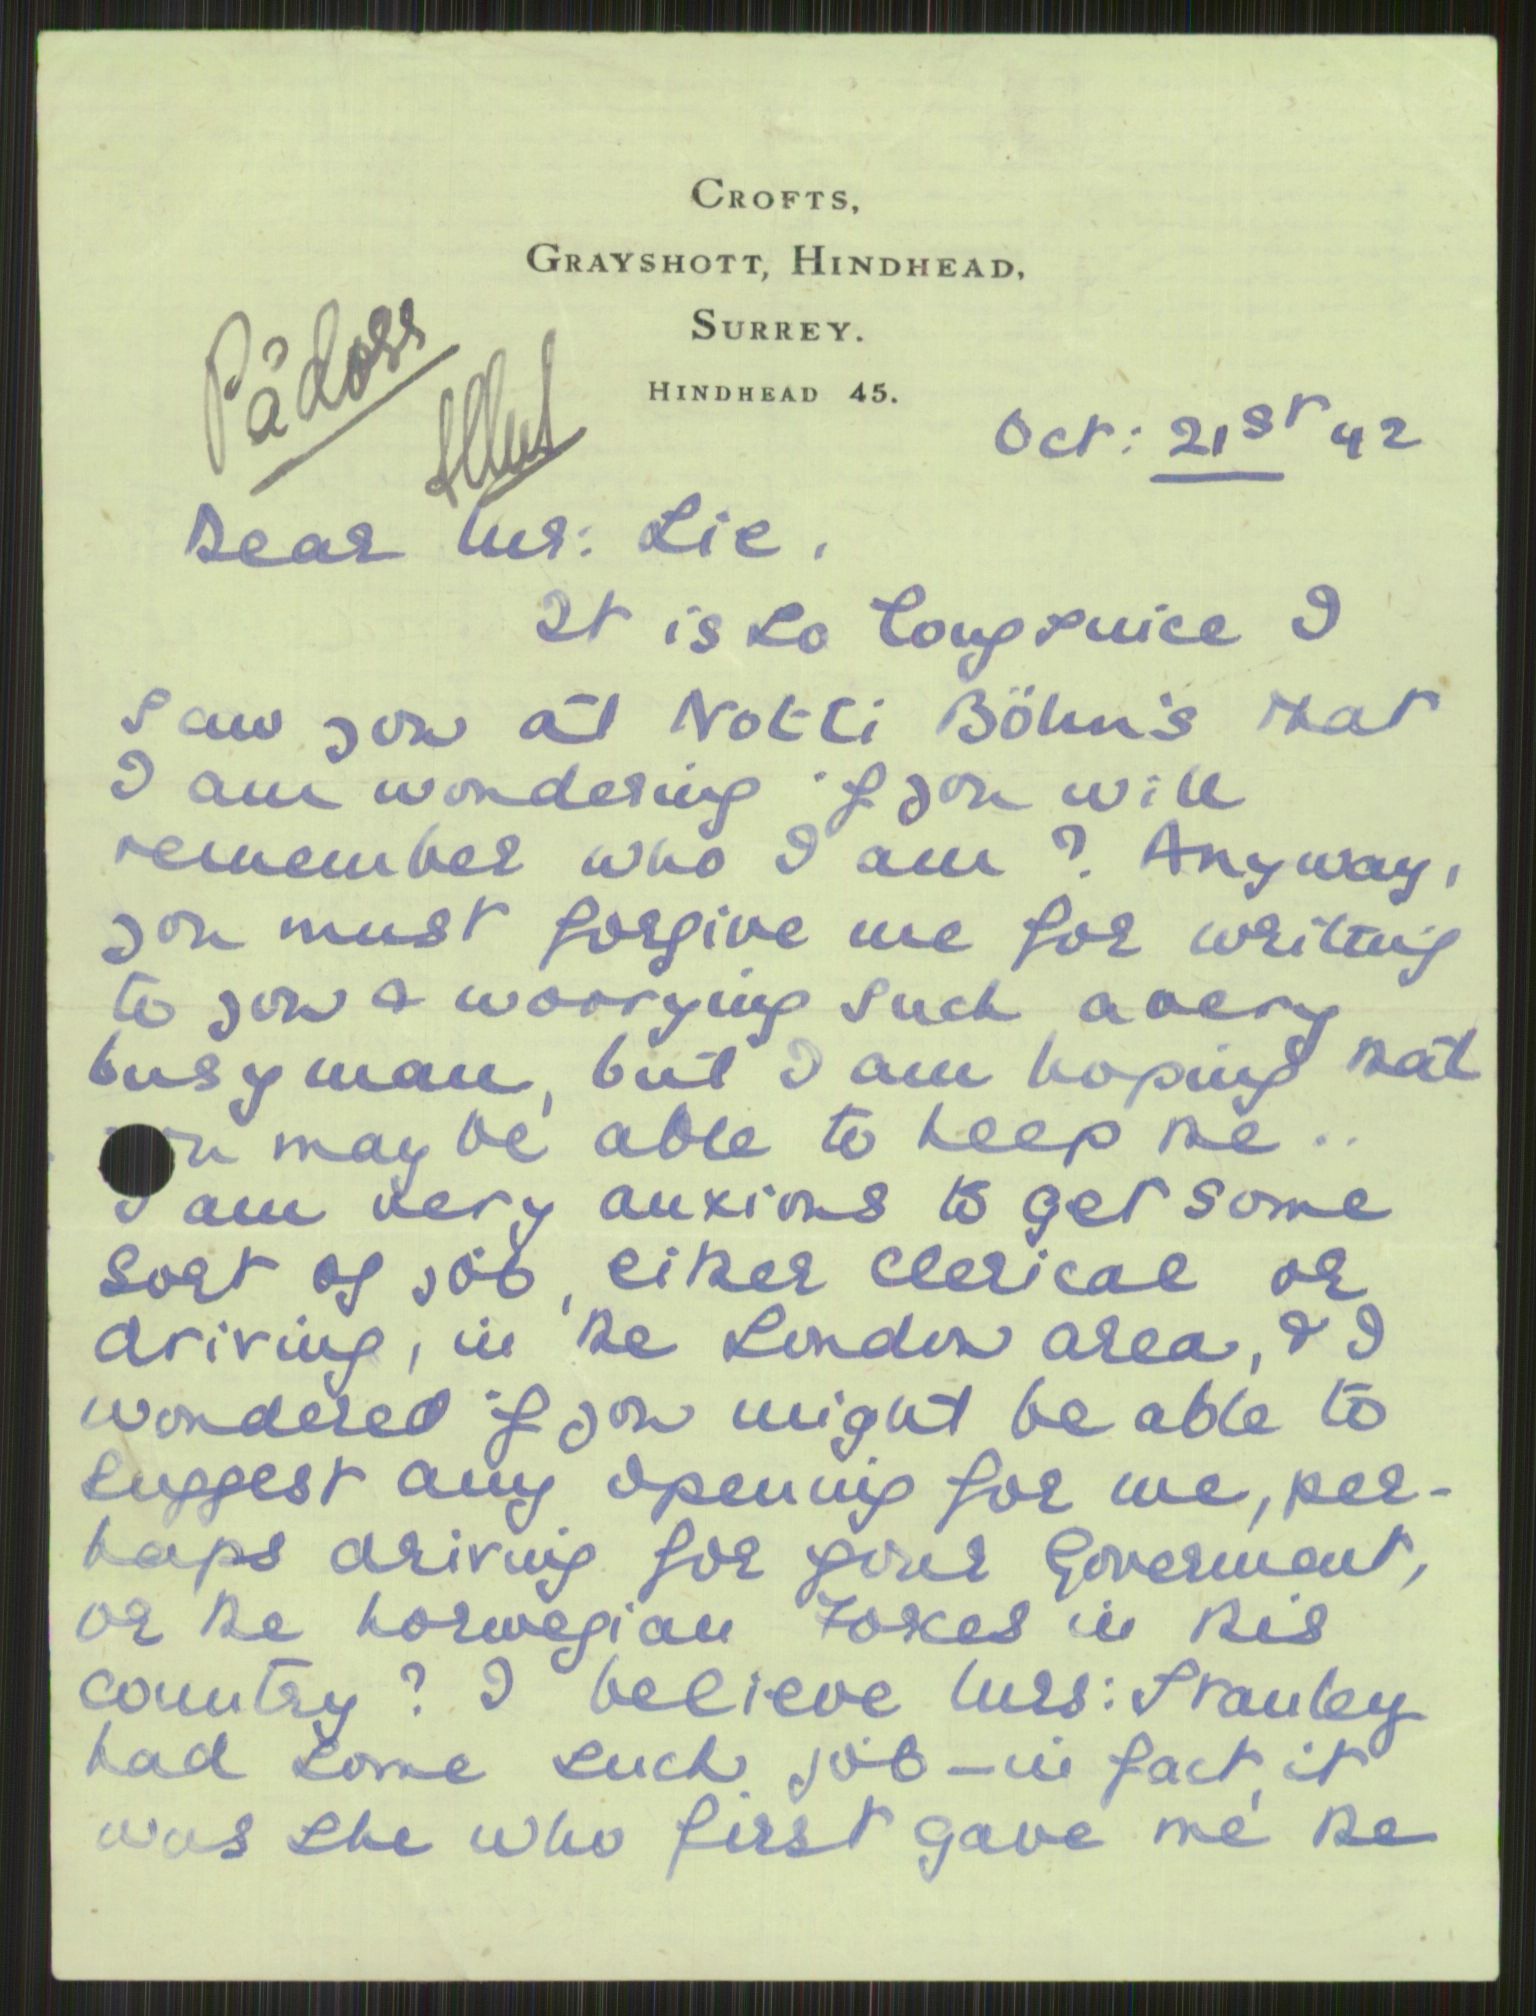 CROFTS,
GRAYSHOTT, HINDHEAD,
SURREY.
HINDHEAD 45.
Oct: 21st 42
Dear Mr: Lie,
It is so long since I
saw you at Notti Böhn's that
I am wondering if you will
remember who I am? Anyway,
you must forgive me for writing
to you & worrying such a very
busy man, but I am hoping that
you may be able to help me..
I am very anxious to get some
sort of job, either clerical or
driving, in the London area, & I
wondered if you might be able to
suggest any opening for me, per-
haps driving for your Goverment,
or the Norwegian Forces in this
country? I believe Mrs: Stanley
had some such job - in fact, it
was she who first gave me the